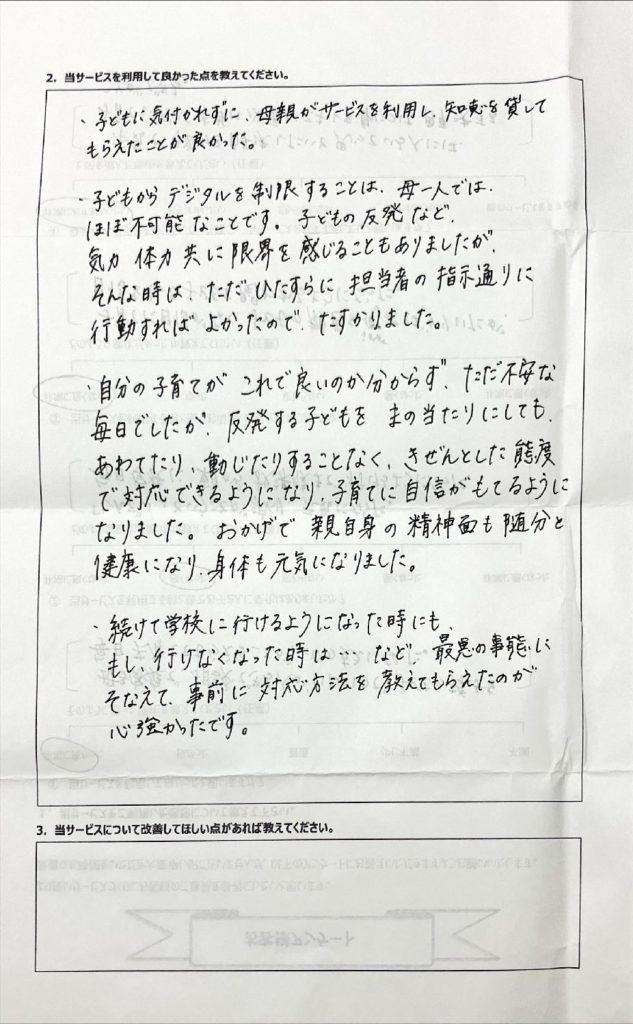 2．当サービスを利用して良かった点を教えてください。
・子どもに気付かれずに、母親がサービスを利用し、知恵を貸して
もらえたことが良かった。
・子どもから デジタルを制限することは、母一人では、
ほぼ不可能なことです。子どもの反発など、
気力 体力 共に限界を感じることもありましたが、
そんな時は、ただひたすらに担当者の指示通りに
行動すれば よかったので、たすかりました。
・自分の子育てが これで良いのか分からず、ただ不安な
毎日でしたが、反発する子どもを まの当たりにしても、
あわてたり、動じたりすることなく、きぜんとした態度
で対応できるようになり、子育てに自信がもてるように
なりました。おかげで 親自身の精神面も随分と
健康になり、身体も元気になりました。
・続けて学校に行けるようになった時にも、
もし、行けなくなった時は… など、最悪の事態に
そなえて、事前に対応方法を教えてもらえたのが
心強かったです。
3．当サービスについて改善してほしい点があれば教えてください。